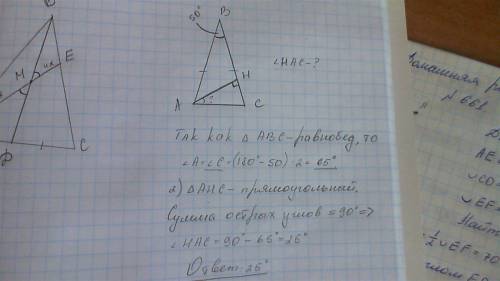 B
E
M
D
C
50°
B
H
A
C
∠HAC-?
Так как △ ABC-равновед, то
∠A=∠C=(180°-50):2=65°
2) △AHC-прямоугольный.
Сумма острых углов =90°=>
∠HAC=90°-65°=25°
Ответ: 25°
Домашняя
№ 661
AE =
∪CD =
∪EF =
Найт
1/2 ∪EF = 70